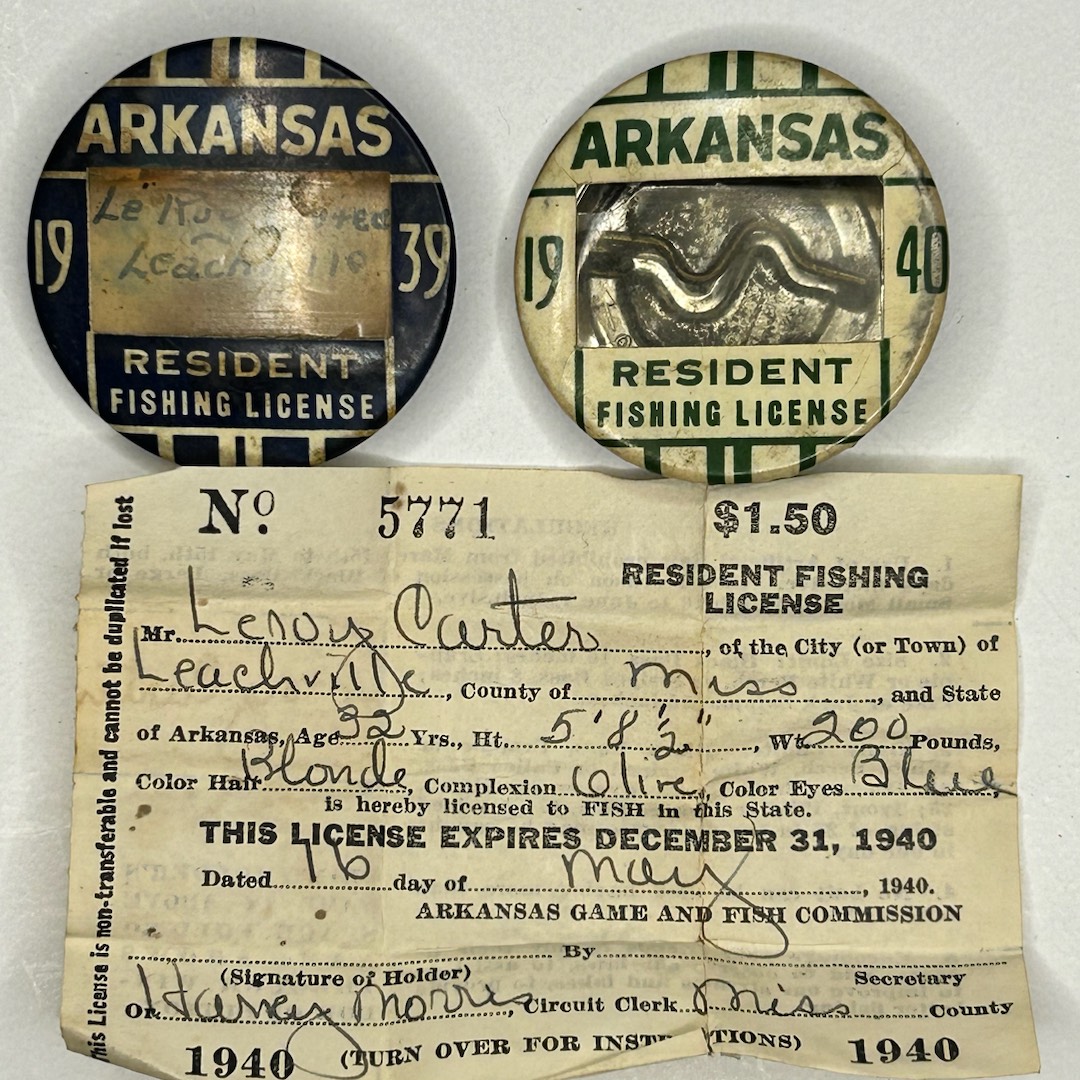 ARKANSAS
19 39
Le Roy
Leachville
RESIDENT
FISHING LICENSE
ARKANSAS
19 40
RESIDENT
FISHING LICENSE
This License is non-transferable and cannot be duplicated if lost
No. 5771 $1.50
RESIDENT FISHING
LICENSE
Mr. Leroy Carter, of the City (or Town) of
Leachville, County of Miss, and State
of Arkansas, Age 32 Yrs., Ht. 5' 8 1/2", Wt. 200 Pounds,
Color Hair Blonde, Complexion Olive, Color Eyes Blue,
is hereby licensed to FISH in this State.
THIS LICENSE EXPIRES DECEMBER 31, 1940
Dated 16 day of May, 1940.
ARKANSAS GAME AND FISH COMMISSION
By
(Signature of Holder) Secretary
Or Harvey Morris, Circuit Clerk Miss County
1940 (TURN OVER FOR INSTRUCTIONS) 1940